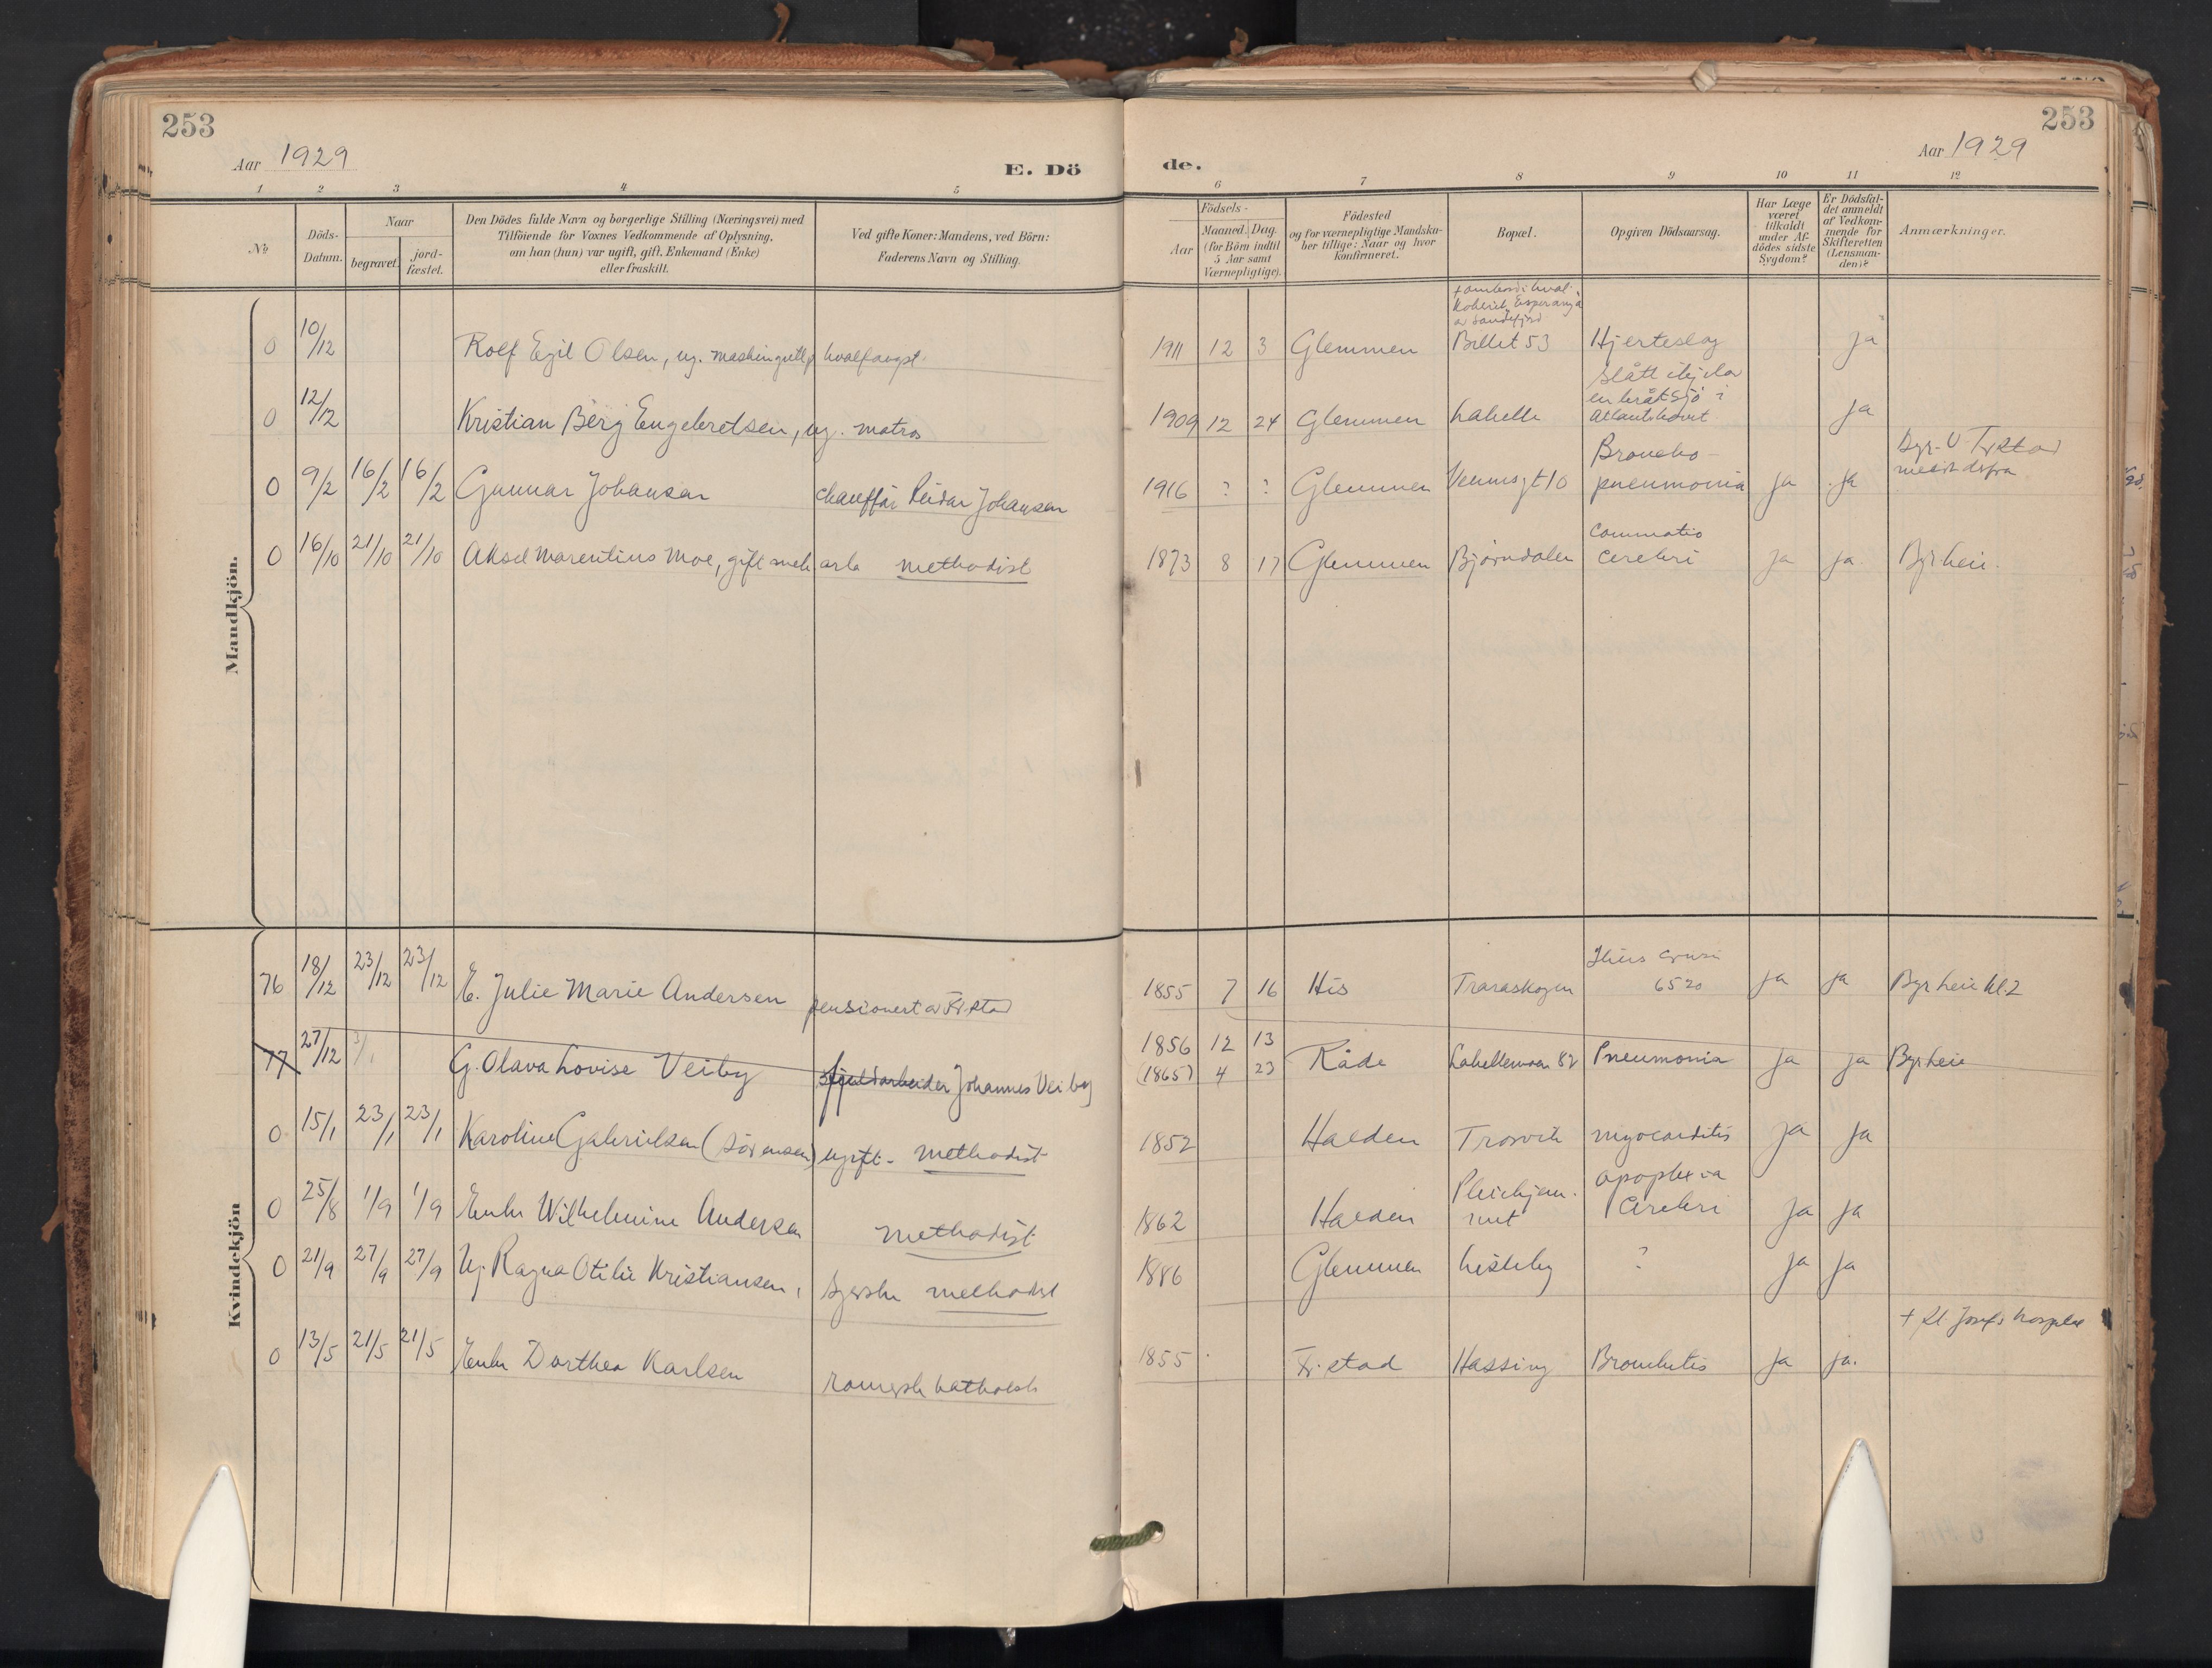 253
Aar 1929
E. Dö
1 2 3 4 5
No
Döds-
Datum.
Naar
begravet.
jord-
fæstet.
Den Dödes fulde Navn og borgerlige Stilling (Næringsvei) med
Tilföiende for Voxnes Vedkommende af Oplysning,
om han (hun) var ugift, gift, Enkemand (Enke)
eller fraskilt.
Ved gifte Koner: Mandens, ved Börn:
Faderens Navn og Stilling.
Mandkjön.
0 10/12 Rolf Egil Olsen, ug. hvalfangst
0 12/12 Kristian Berg Engebretsen, ug. matros
0 9/2 16/2 16/2 Gunnar Johansen chauffør Reidar Johansen
0 16/10 21/10 21/10 Aksel Marentius Moe, gift mek arb methodist
Kvindekjön
76 18/12 23/12 23/12 E. Julie Marie Andersen pensionert av Fr.stad
77 27/12 3/1 G. Olava Lovise Veiby Johannes Veiby
0 15/1 23/1 23/1 Karoline Gabrielsen (Sörensen) ugift - methodist
0 25/8 1/9 1/9 Enke Wilhelmine Andersen methodist
0 21/9 27/9 27/9 Ug. Ragna Otilie Kristiansen, syerske methodist
0 13/5 21/5 21/5 Enke Dorthea Karlsen romersk katholsk
253
Aar 1929
de.
6 7 8 9 10 11 12
Födsels-
Aar
Maaned. Dag.
(for Börn indtil
5 Aar samt
Værnepligtige).
Födested
og for værnepligtige Mandska-
ber tillige: Naar og hvor
konfirmeret.
Bopæl.
Opgiven Dödsaarsag.
Har Læge
været
tilkaldt
under Af-
dödes sidste
Sygdom?
Er Dödsfal-
det anmeldt
af Vedkom-
mende for
Skifteretten
(Lensman-
den)?
Anmærkninger.
+ ombord i hval-
kokeriet Esperanza
av Sandefjord
1911 12 3 Glemmen Billet 53 Hjerteslag ja
slått ihjel av
en bråtsjö i
1909 12 24 Glemmen Labelle Atlanterhavet ja
Broncho-
1916 ? ? Glemmen Venusgt 10 pneumonia ja ja
Commotio
1873 8 17 Glemmen Bjørndalen cerebri ja ja Byrheie.
1855 7 16 His Traraskogen 65 20 ja ja Byrheie kl. 2
1856 12 13
(1865) 4 23 Råde Labellemoen 82 Pneumonia ja ja Byrheie
1852 Halden Trosvik myocarditis ja ja
Pleiehjem- apoplexia
1862 Halden met cerebri ja ja
1886 Glemmen Lisleby ? ja ja
+ St. Josefs hospital
1855 Fr. stad Hassing Bronchitis ja ja.